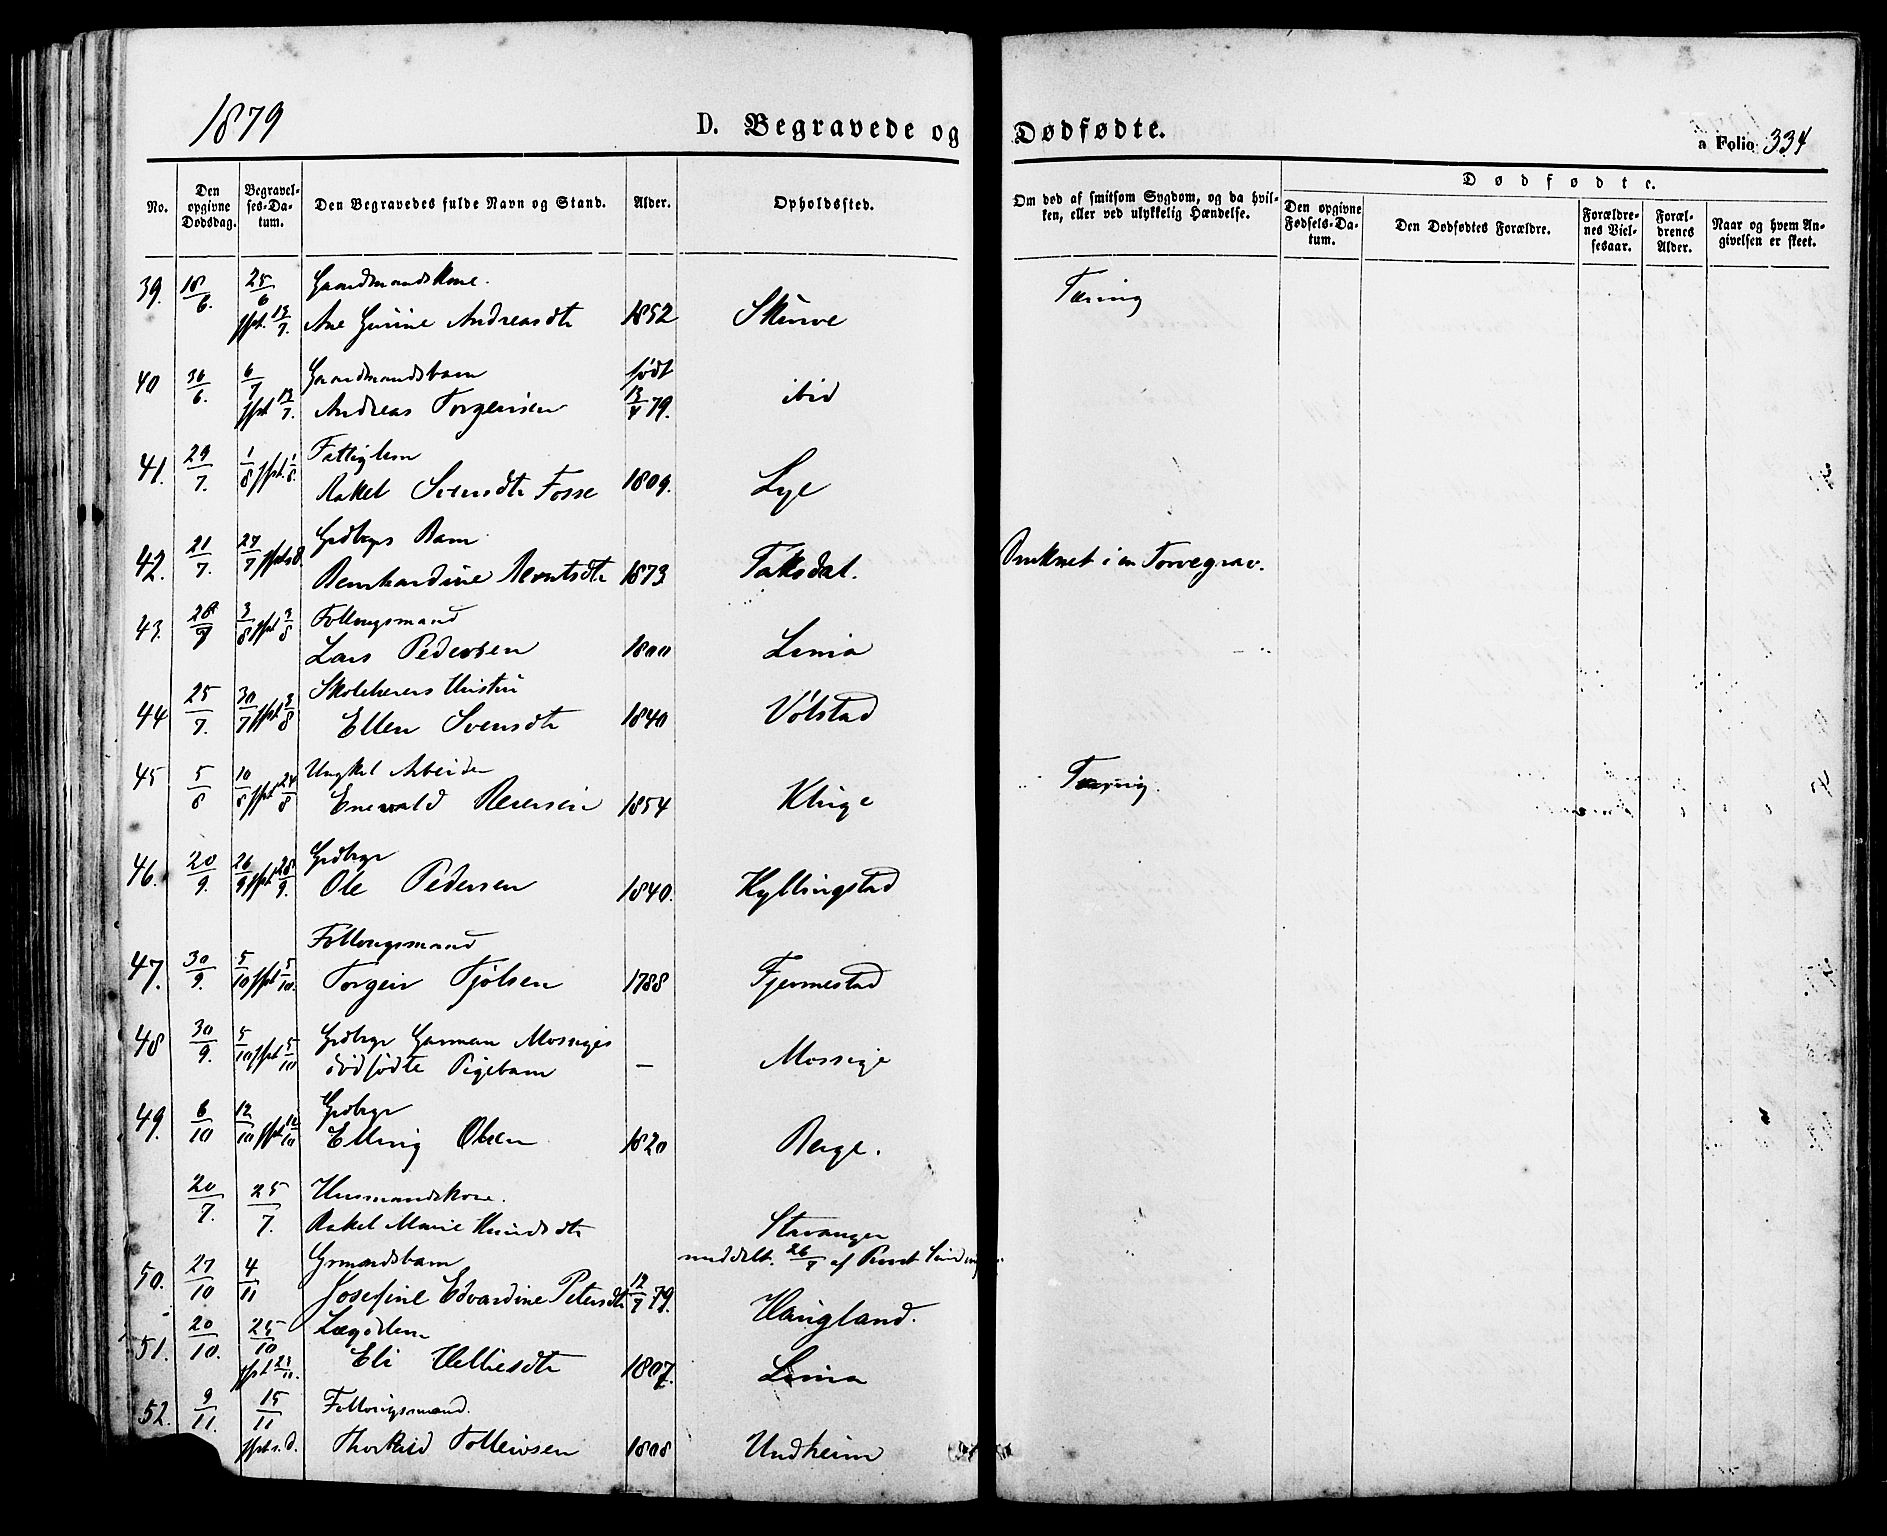 1879
D. Begravede og Dødfødte.
a Folio 334
No.
Den opgivne Dødsdag.
Begravelses-Datum.
Den Begravedes fulde Navn og Stand.
Alder.
Opholdssted.
Om død af smitsom Sygdom, og da hvilken, eller ved ulykkelig Hændelse.
Dødfødte.
Den opgivne Fødsels-Datum.
Den Dødfødtes Forældre.
Forældrenes Vielsesaar.
Forældrenes Alder.
Naar og hvem Angivelsen er skeet.
39. 18/6. 25/6 Gaardmandskone. Tæring
jfpt. 13/7. Ane Gurine Andreasdtr 1852 Skurve
40 30/6. 6/7 Gaardmandsbarn født
jfpt 13/7. Andreas Torgersen 13/4 79. ibid
41. 29/7. 1/8 jfpt. 1/8. Fattiglem
Rakel Svendsdtr Fosse 1809. Lye
42. 21/7. 27/7 jfpt s.D. Grdbrgs Barn
Bernhardine Berntsdtr 1873 Taksdal. Druknet i en Torvegrav.
43. 28/7 3/8 jfpt 3/8 Føllougsmand
Lars Pedersen 1800 Lima
44 25/7. 30/7 jfpt 3/8 Skolelærers Hustru
Ellen Svensdtr 1840 Vølstad
45 5/8 10/8 jfpt 24/8 Ungkel Arbeider Tæring.
Enevald Reiersen 1854 Kluge
46. 20/9. 26/9 jfpt 28/9. Grdbrgr
Ole Pedersen 1840. Kyllingstad
47. 30/9. 5/10 jfpt 5/10. Føllougsmand
Torgeir Tjølsen 1788 Fjermestad
48 30/9. 5/10 jfpt 5/10 Grdbrgr Garman Mossiges
dødfødte Pigebarn — Mossige
49. 6/10 12/10 jfpt 12/10 Grdbrgr
Elling Olsen 1820 Berge.
20/7. 25/7. Husmandskone.
Rakel Marie Knudsdtr Stavanger
meddelt. 26/7 af Præst
50. 27/10 4/11 Grmandsbarn
Josefine Edvardine Petersdtr 12/7 79. Haugland.
51. 20/10. 25/10 Lægdslem
jfpt 23/11. Eli Helliesdtr 1807. Lima
52. 9/11. 15/11 Føllougsmand.
jfpt s.D. Thorkild Tolleivsen 1808 Undheim